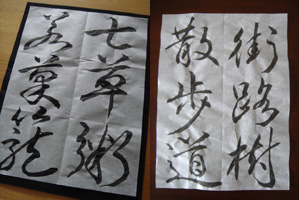 七草粥
若菜籠
街路樹
散歩道